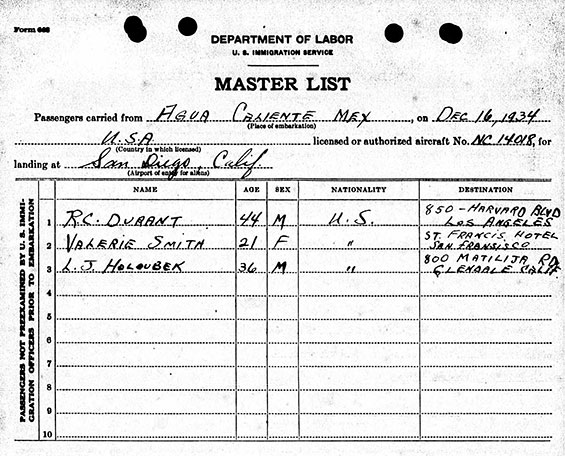 Form 668
DEPARTMENT OF LABOR
U. S. IMMIGRATION SERVICE
MASTER LIST
Passengers carried from AGUA CALIENTE MEX, on DEC 16, 1934
(Place of embarkation)
U.S.A licensed or authorized aircraft No. NC 14018, for
(Country in which licensed)
landing at San Diego, Calif
(Airport of entry for aliens)
PASSENGERS NOT PREEXAMINED BY U. S. IMMI-
GRATION OFFICERS PRIOR TO EMBARKATION
NAME AGE SEX NATIONALITY DESTINATION
1 R.C. DURANT 44 M U.S. 850 - HARVARD BLVD
LOS ANGELES
2 VALERIE SMITH 21 F " ST. FRANCIS HOTEL
SAN FRANSISCO
3 L.J. HOLOUBEK 36 M " 800 MATILIJA RD
GLENDALE CALIF
4
5
6
7
8
9
10